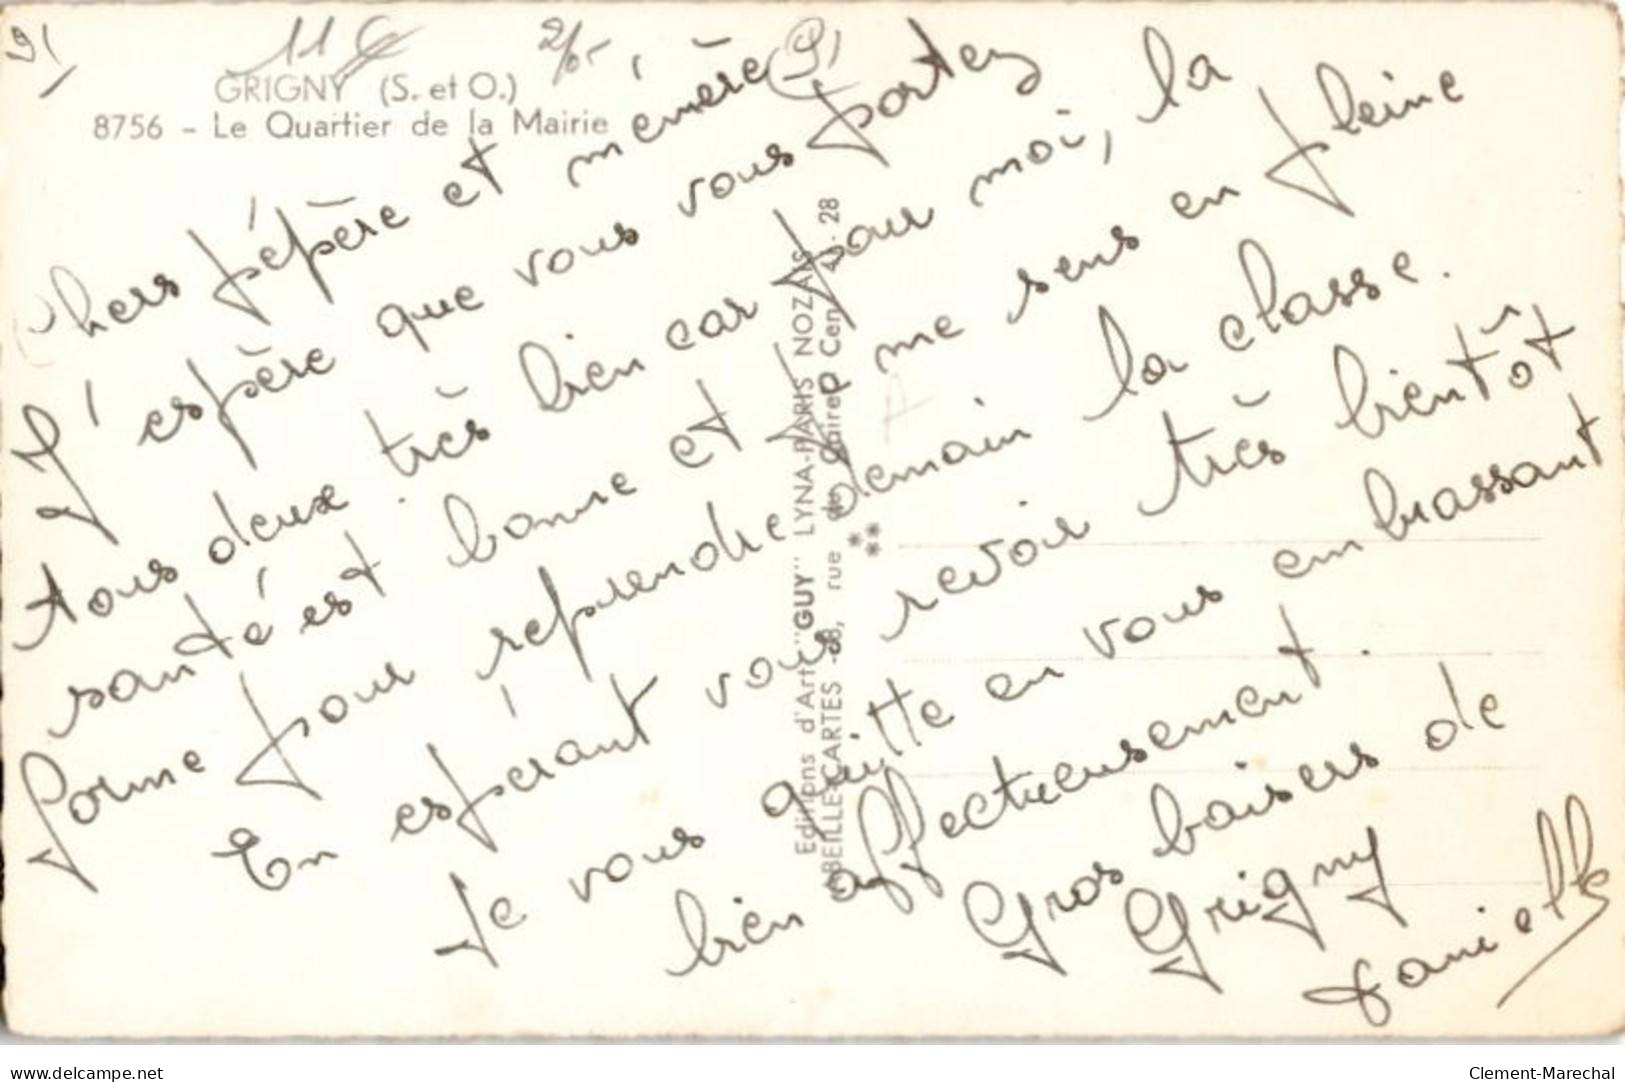 91
11 €
2/65
91
GRIGNY (S. et O.)
8756 - Le Quartier de la Mairie
Chers pépère et mémère
J'espère que vous vous portez
tous deux très bien car pour moi, la
santé est bonne et je me sens en pleine
forme pour reprendre demain la classe.
En espérant vous revoir très bientôt
Je vous quitte en vous embrassant
bien affectueusement.
Gros baisers de
Grigny
Danielle
Editions d'Art "GUY" LYNA-PARIS NOZAIS
ABEILLE-CARTES - 8, rue du Caire Cen. 41-28
delcampe.net
Clement-Marechal